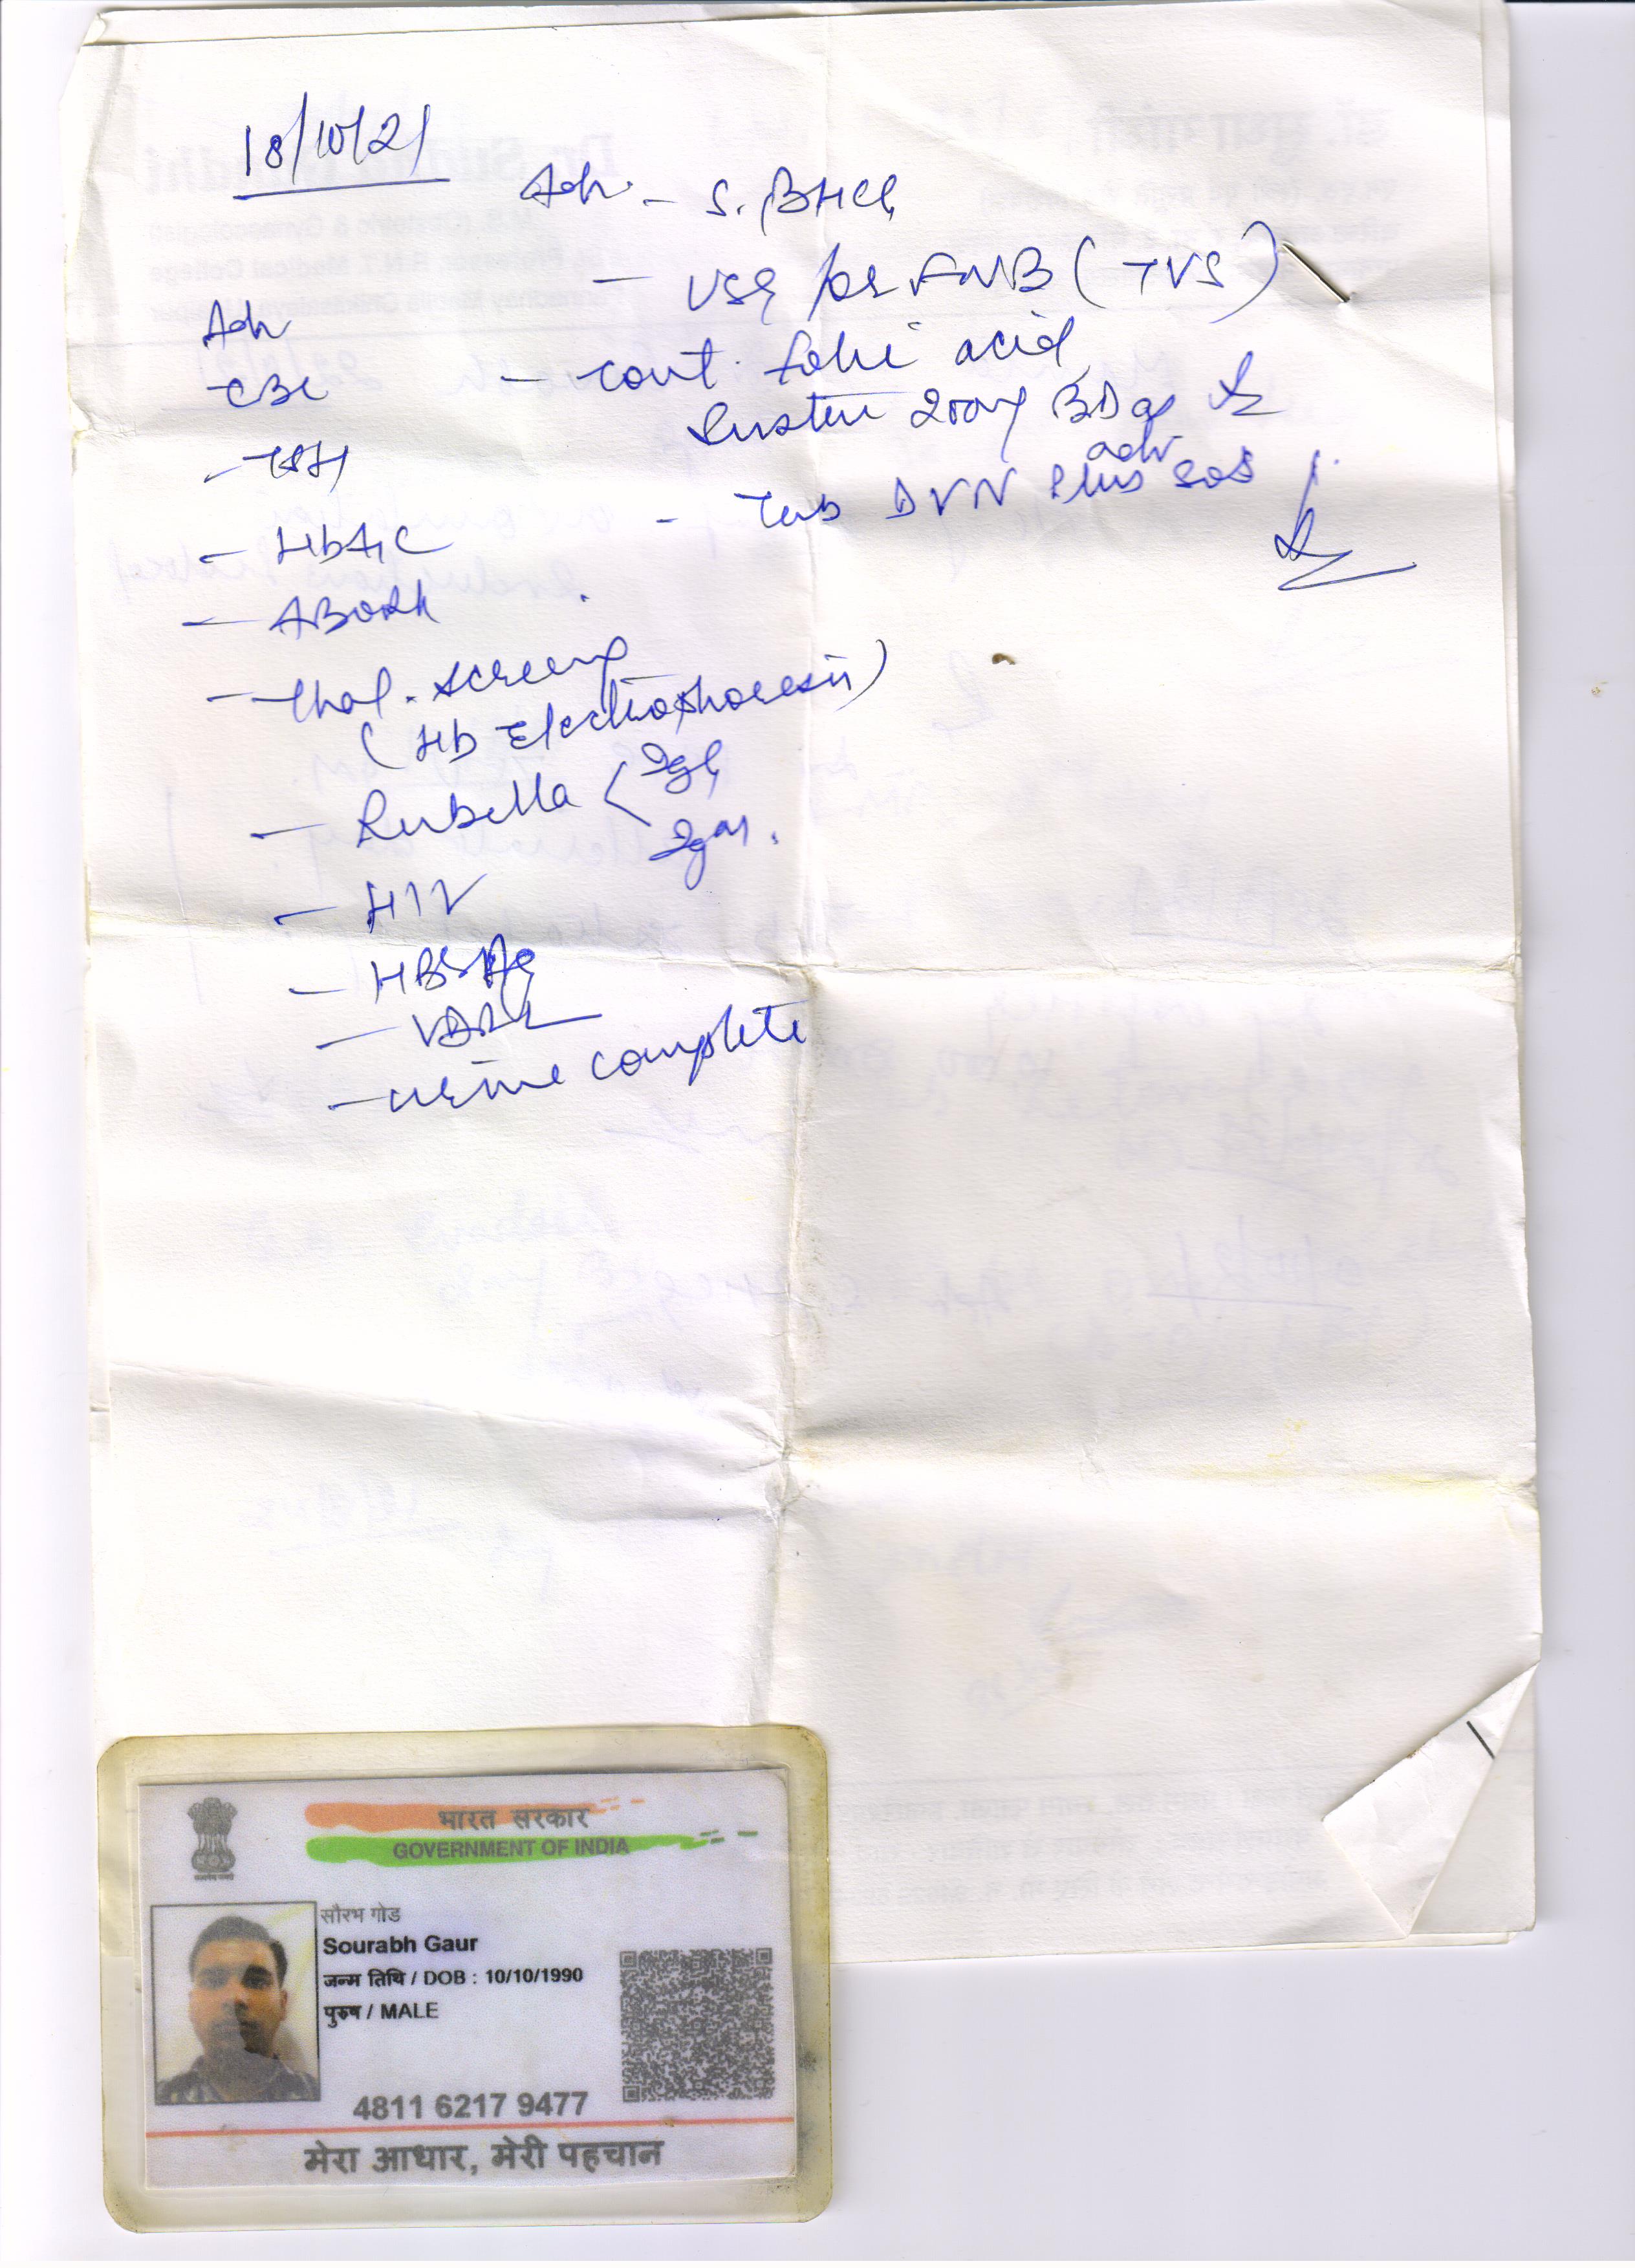 18/10/21
Adv - S. βHCG
- USG for FNB (TVS)
- cont. folic acid
Susten 200mg BD as
adv
- Tab DVN Plus SOS
Adv
- CBC
- TSH
- HbA1C
- ABORh
- Thal. screening
(Hb Electrophoresis)
- Rubella < IgG
IgM.
- HIV
- HBSAg
- VDRL
- urine complete
भारत सरकार
GOVERNMENT OF INDIA
सौरभ गोड
Sourabh Gaur
जन्म तिथि / DOB : 10/10/1990
पुरुष / MALE
4811 6217 9477
मेरा आधार, मेरी पहचान